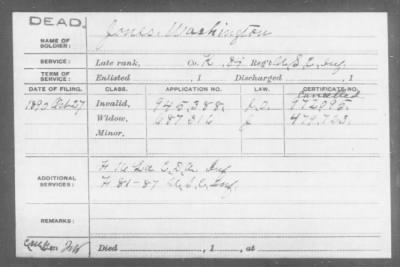 DEAD.
NAME OF SOLDIER: Jones, Washington
SERVICE: Late rank, Co. K, 87 Reg't U.S.C. Inf.
TERM OF SERVICE: Enlisted , 1 Discharged , 1
DATE OF FILING. CLASS. APPLICATION NO. LAW. CERTIFICATE NO.
Cancelled
1890 Oct 27 Invalid, 945,388. 972095.
Widow, 687,316 479,723.
Minor,
ADDITIONAL SERVICES: H 16 La C.D.A. Inf
H 81-87 U.S.C. Inf.
REMARKS:
Died , 1 , at